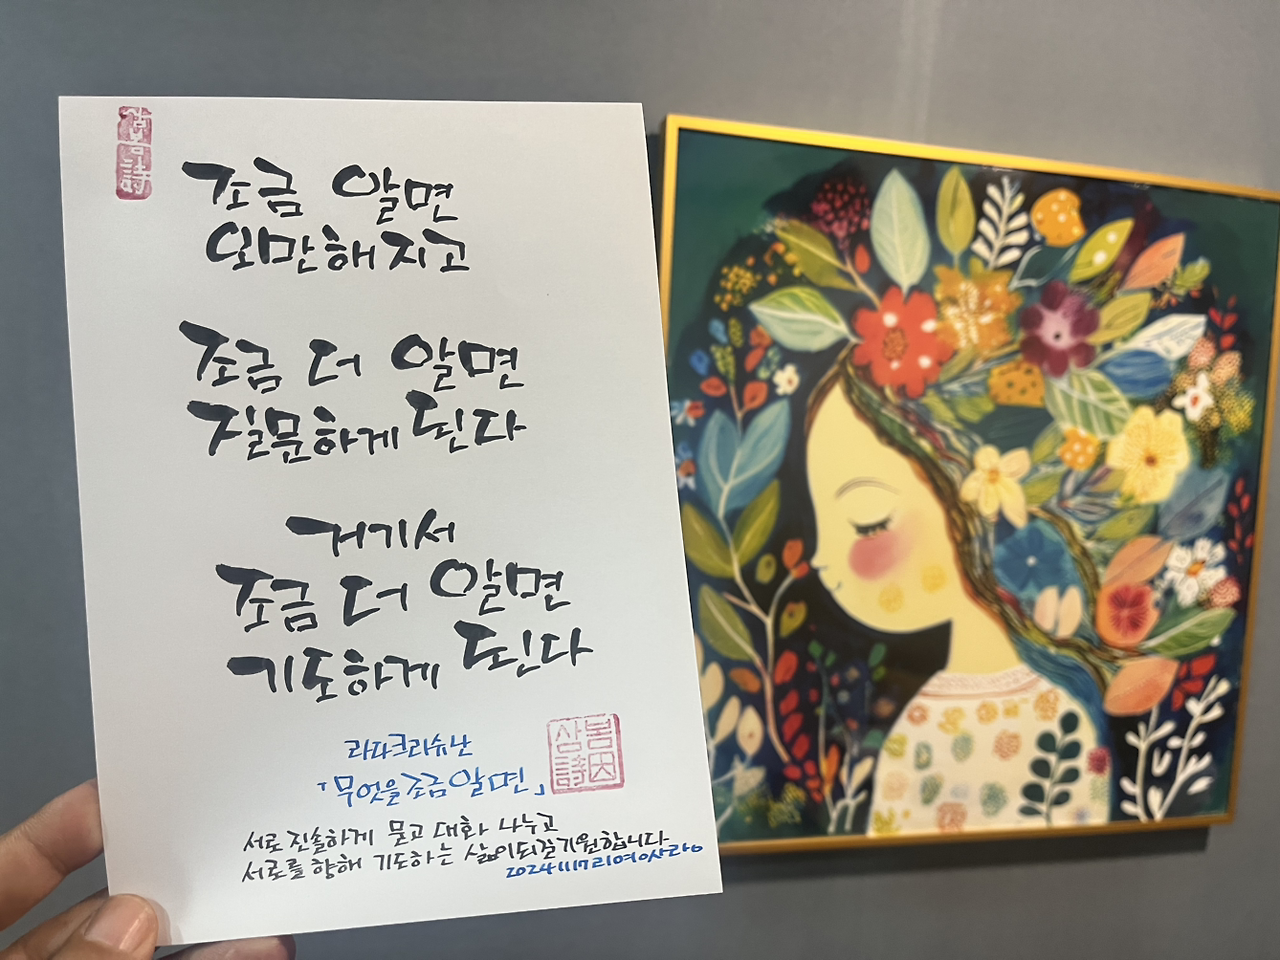 삼봄詩
조금 알면
오만해지고
조금 더 알면
질문하게 된다
거기서
조금 더 알면
기도하게 된다
라다크리슈난
「무엇을 조금 알면」
서로 진솔하게 묻고 대화 나누고
서로를 향해 기도하는 삶이되길기원합니다
20241117